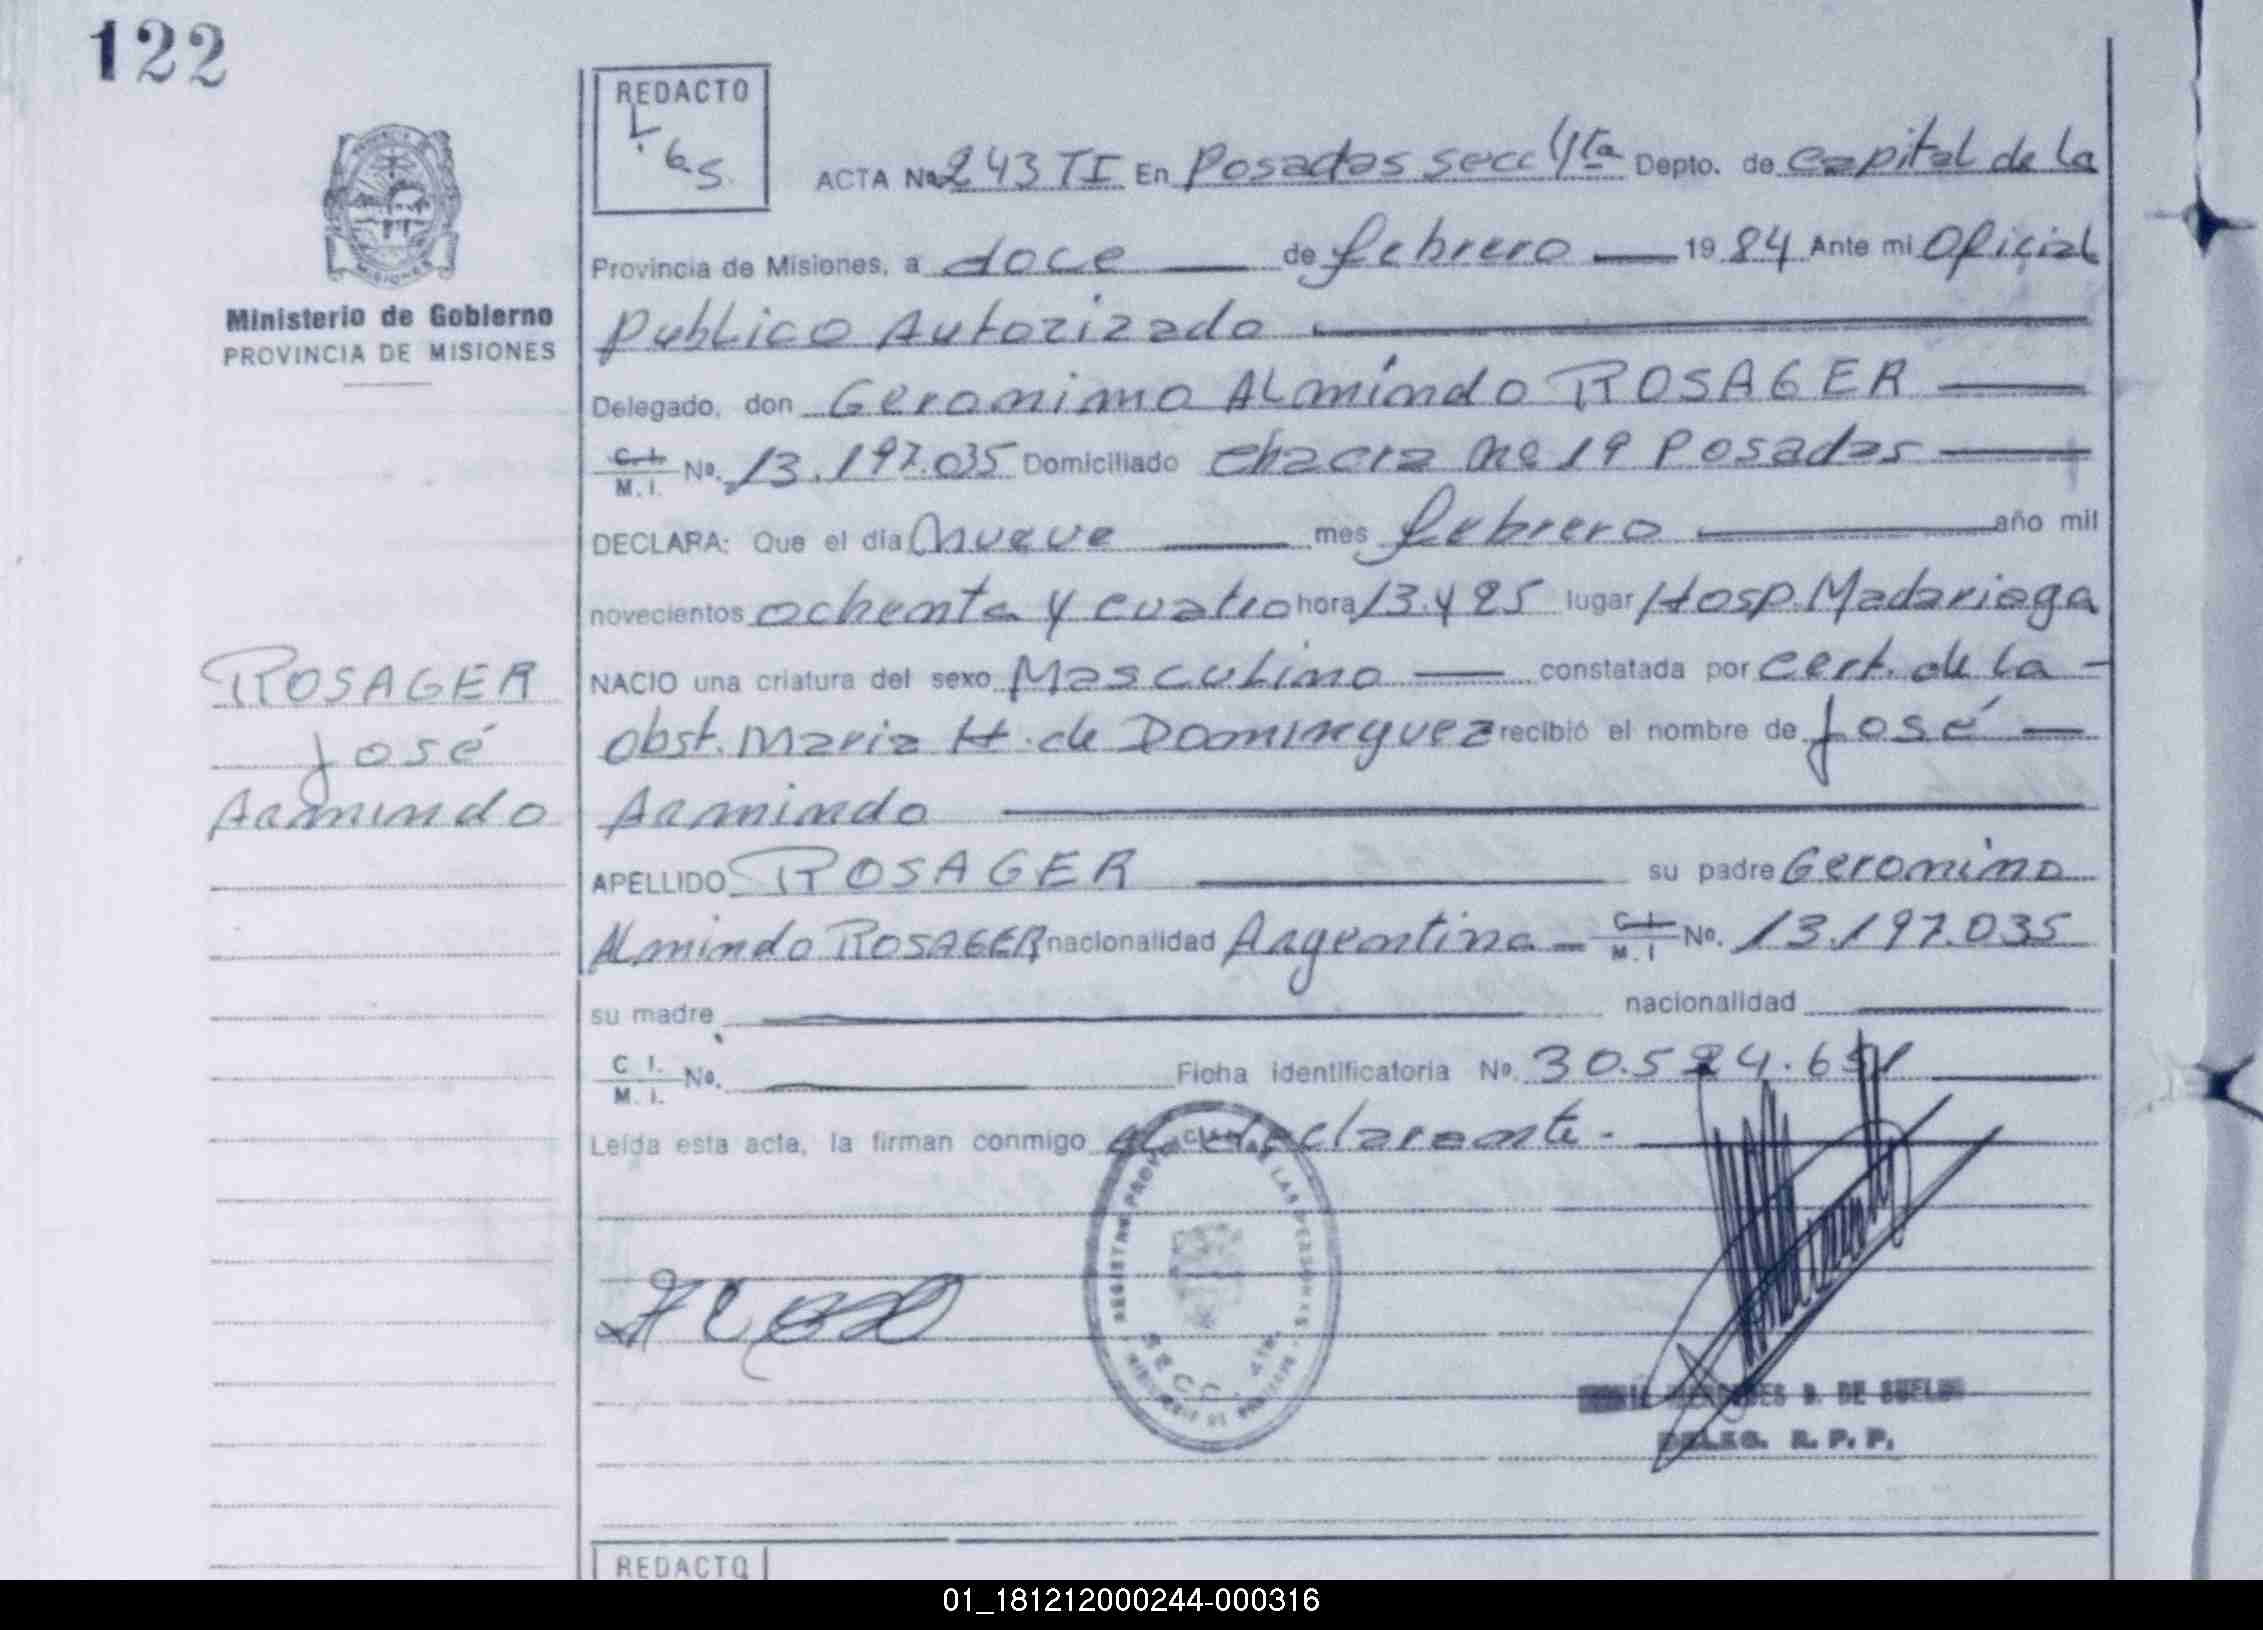 122
REDACTO
L. G S.
ACTA No. 243 TI En Posadas secc 4ta Depto. de Capital de la
Provincia de Misiones, a doce de febrero 1984 Ante mi Oficial
Ministerio de Gobierno
PROVINCIA DE MISIONES
Publico Autorizado
Delegado, don Geronimo Almindo ROSAGER
C. I. M. I. No. 13.197.035 Domiciliado Chacra No 19 Posadas
DECLARA: Que el día nueve mes febrero año mil
novecientos ochenta y cuatro hora 13.y 25 lugar Hosp. Madariaga
ROSAGER
José
Armindo
NACIO una criatura del sexo Masculino constatada por cert. de la
obst. Maria H. de Dominguez recibió el nombre de José
Armindo
APELLIDO ROSAGER su padre Geronimo
Almindo ROSAGER nacionalidad Argentina C. I. M. I No. 13.197.035
su madre nacionalidad
C I. M. I. No. Ficha identificatoria No. 30.524.651
Leída esta acta, la firman conmigo el declarante.
REGISTRO PROVINCIAL DE LAS PERSONAS
SECC. 4TA.
MERCEDES B. DE
DELEG. R. P. P.
REDACTO
01_181212000244-000316